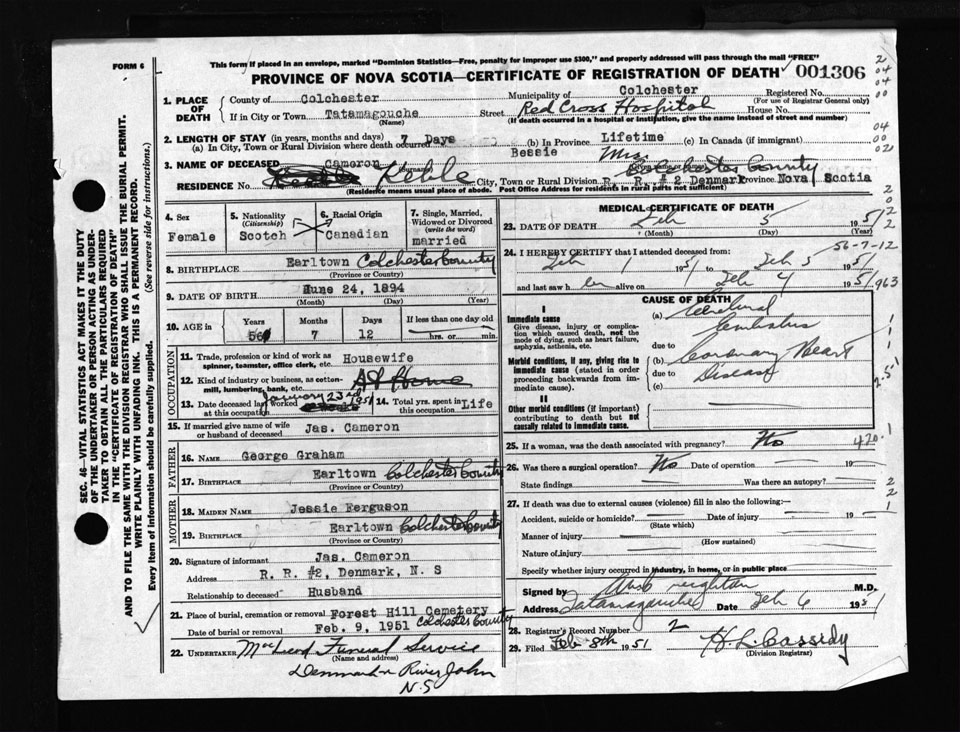 This form if placed in an envelope, marked "Dominion Statistics—Free, penalty for improper use $300," and properly addressed will pass through the mail "FREE"
FORM 6
PROVINCE OF NOVA SCOTIA—CERTIFICATE OF REGISTRATION OF DEATH 001306
1. PLACE OF DEATH
County of Colchester
Municipality of Colchester Registered No.
(For use of Registrar General only)
If in City or Town Tatamagouche (Name) Street Red Cross Hospital House No.
(If death occurred in a hospital or institution, give the name instead of street and number)
2. LENGTH OF STAY (in years, months and days)
(a) In City, Town or Rural Division where death occurred 7 Days (b) In Province Lifetime (c) In Canada (if immigrant)
3. NAME OF DECEASED Cameron Bessie Mrs.
(Surname)
RESIDENCE No. City, Town or Rural Division R. R. #2 Denmark Colchester County Province Nova Scotia
(Residence means usual place of abode. Post Office Address for residents in rural parts not sufficient)
4. Sex
Female
5. Nationality (Citizenship)
Scotch
6. Racial Origin
Canadian
7. Single, Married, Widowed or Divorced (write the word)
married
8. BIRTHPLACE Earltown Colchester County
(Province or Country)
9. DATE OF BIRTH Hune 24, 1894
(Month) (Day) (Year)
10. AGE in Years Months Days If less than one day old
56 7 12 hrs. or min.
OCCUPATION
11. Trade, profession or kind of work as spinner, teamster, office clerk, etc. Housewife
12. Kind of industry or business, as cotton-mill, lumbering, bank, etc. At Home
13. Date deceased last worked at this occupation January 23rd 1951
14. Total yrs. spent in this occupation Life
15. If married give name of wife or husband of deceased Jas. Cameron
FATHER
16. NAME George Graham
17. BIRTHPLACE Earltown Colchester County
(Province or Country)
MOTHER
18. MAIDEN NAME Jessie Ferguson
19. BIRTHPLACE Earltown Colchester County
(Province or Country)
20. Signature of informant Jas. Cameron
Address R. R. #2, Denmark, N. S
Relationship to deceased Husband
21. Place of burial, cremation or removal Forest Hill Cemetery
Date of burial or removal Feb. 9, 1951 Colchester County
22. UNDERTAKER MacLeod Funeral Service
(Name and address)
Denmark River John
N.S
MEDICAL CERTIFICATE OF DEATH
23. DATE OF DEATH Feb 5 1951
(Month) (Day) (Year)
56-7-12
24. I HEREBY CERTIFY that I attended deceased from:
Feb 1 1951 to Feb 5 1951
and last saw her alive on Feb 4 1951
963
CAUSE OF DEATH
I
Immediate cause
Give disease, injury or complication which caused death, not the mode of dying, such as heart failure, asphyxia, asthenia, etc.
(a) Cerebral Embolus
due to
Morbid conditions, if any, giving rise to immediate cause (stated in order proceeding backwards from immediate cause).
(b) Coronary Heart
due to Disease
(c)
II
Other morbid conditions (if important) contributing to death but not causally related to immediate cause.
25. If a woman, was the death associated with pregnancy? No
420-1
26. Was there a surgical operation? No Date of operation 19
State findings Was there an autopsy?
27. If death was due to external causes (violence) fill in also the following:—
Accident, suicide or homicide? Date of injury 19
(State which)
Manner of injury
(How sustained)
Nature of injury
Specify whether injury occurred in industry, in home, or in public place
Signed by M.D.
Address Tatamagouche Date Feb 6 1951
28. Registrar's Record Number 2
29. Filed Feb 8th 1951 H. L. Cassidy
(Division Registrar)
SEC. 46-VITAL STATISTICS ACT MAKES IT THE DUTY
OF THE UNDERTAKER OR PERSON ACTING AS UNDER-
TAKER TO OBTAIN ALL THE PARTICULARS REQUIRED
IN THE "CERTIFICATE OF REGISTRATION OF DEATH"
AND TO FILE THE SAME WITH THE DIVISION REGISTRAR WHO SHALL ISSUE THE BURIAL PERMIT.
WRITE PLAINLY WITH UNFADING INK. THIS IS A PERMANENT RECORD.
Every item of information should be carefully supplied. (See reverse side for instructions.)